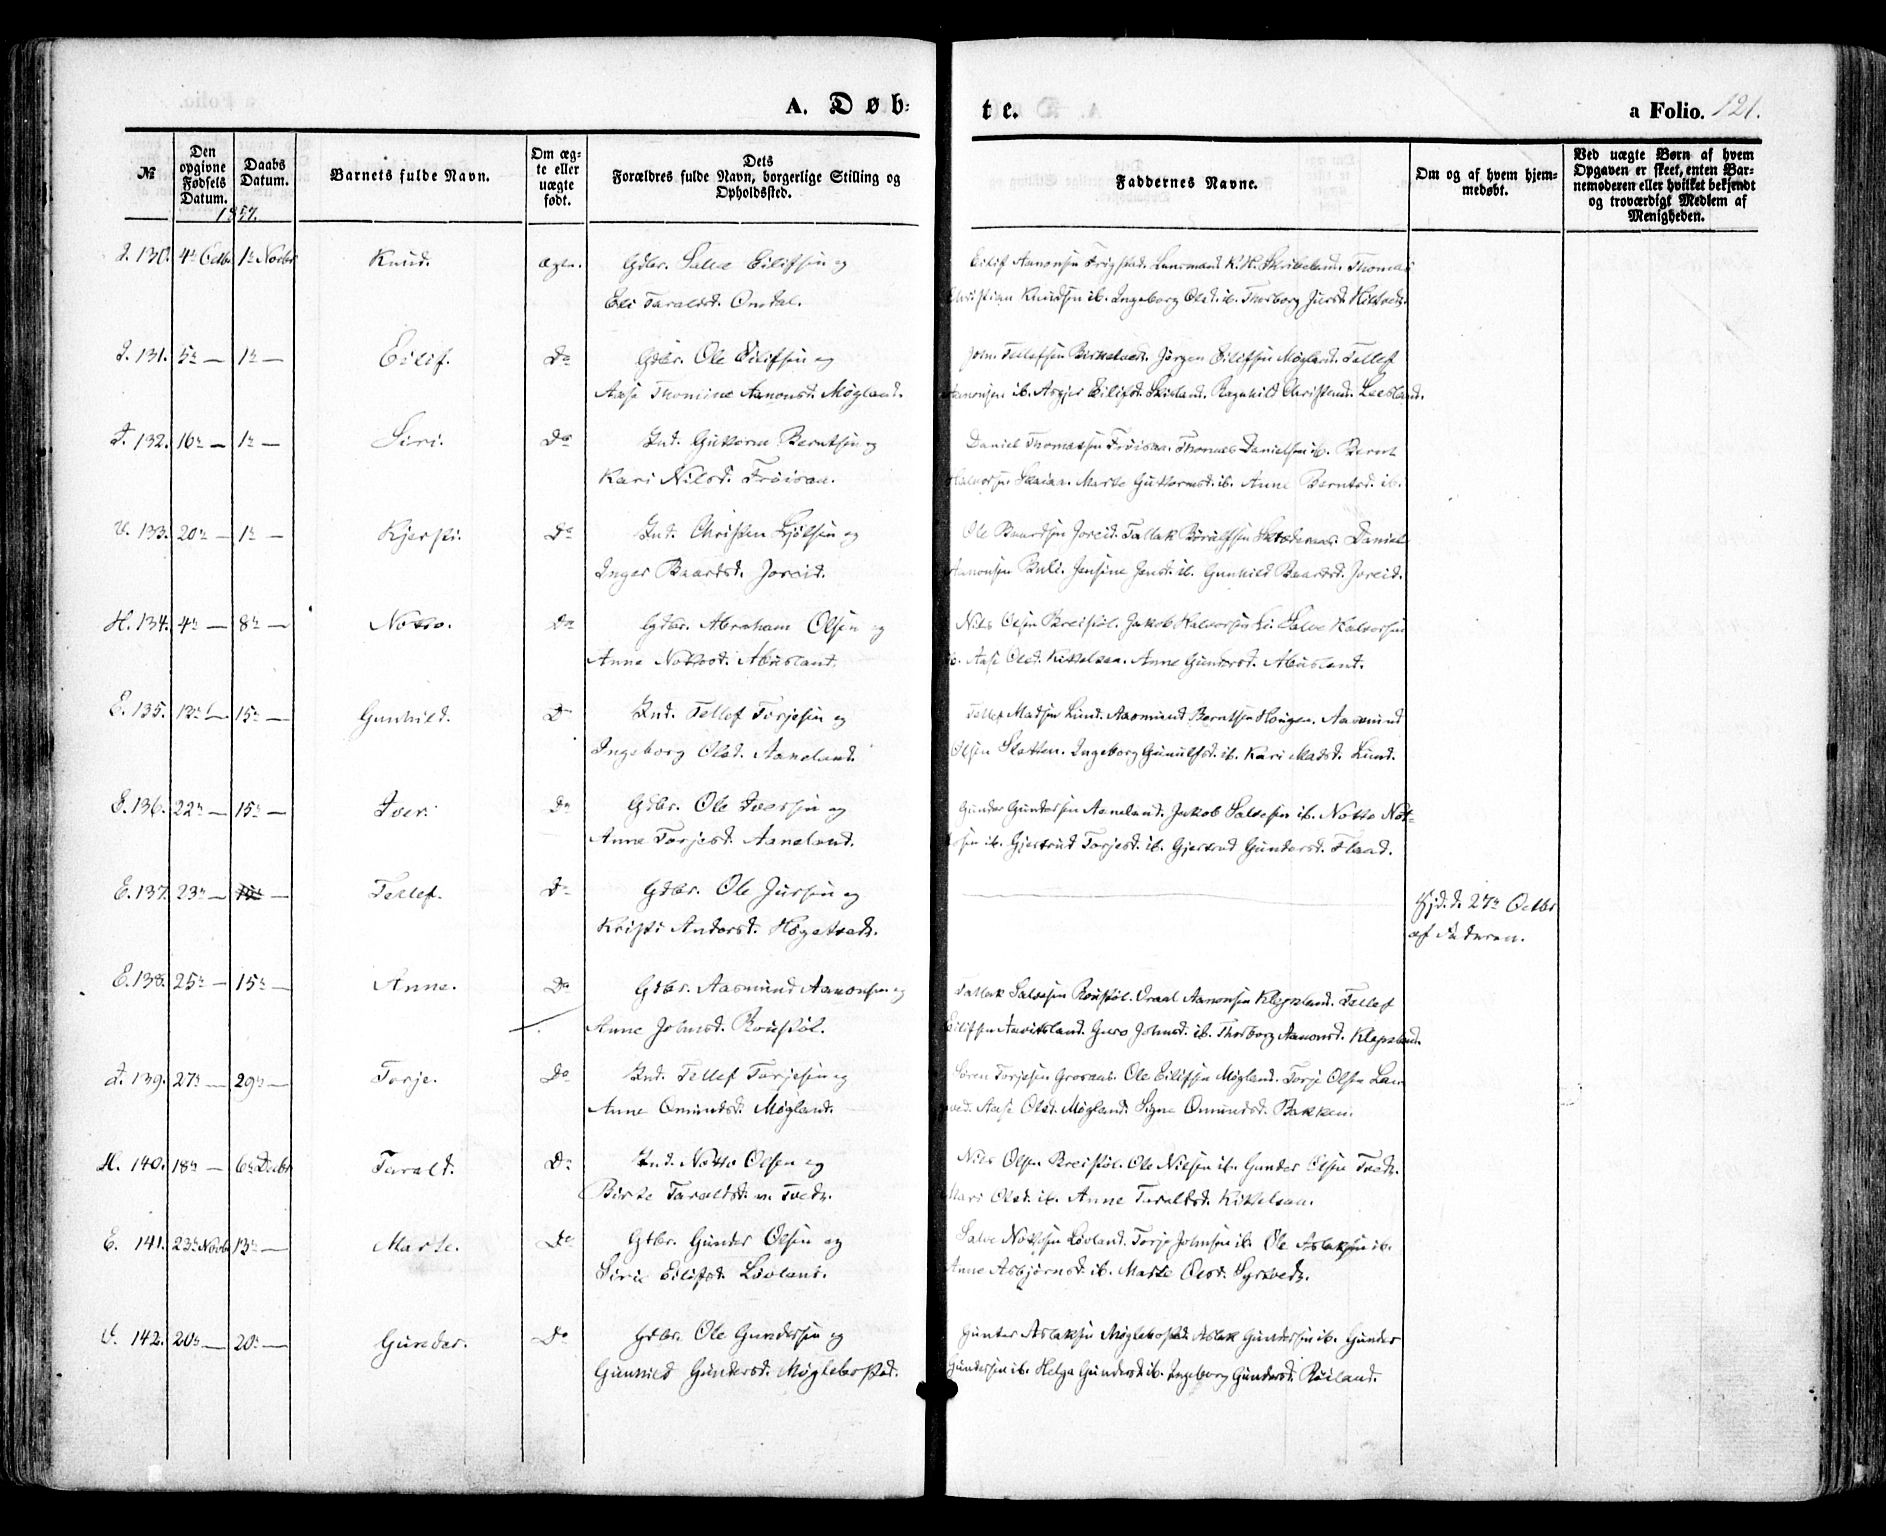 A. Døb-
te.
a Folio. 121.
№
Den opgivne Fødsels Datum.
Daabs Datum.
1857.
Barnets fulde Navn.
Om ægte eller uægte født.
Dets Forældres fulde Navn, borgerlige Stilling og Opholdssted.
Faddernes Navne.
Om og af hvem hjemmedøbt.
Ved uægte Børn af hvem Opgaven er skeet, enten Barnemoderen eller hvilket bekjendt og troværdigt Medlem af Menigheden.
130. 4de Octbr 1ste Novbr Knud. ægte. Gdbr. Salve Eilifsen og
Eli Taraldsd. Omdal.
Eilif Aanonsen Frigstad. Lensmand K. K. Skribeland. Thomas
Christian Knudsen ib. Ingeborg Olsd. ib. Thorborg Jursd.
131. 5te — 1ste — Eilif. Do Gdbr. Ole Eilifsen og
Aase Thomine Aanonsd. Møgland.
John Tellefsen Birketvedt. Jørgen Eilifsen Møgland. Tellef
Aanonsen ib. Asgjer Eilifsd. Skisland. Ragnhild Christensd.
132. 16de — 1ste — Siri. Do Ind. Guttorm Berntsen og
Kari Nilsd. Frøisaa.
Daniel Thomassen Frøisaa. Thomas Danielsen ib. Bernt
Halvorsen Skaiaa. Marte Guttormsd. ib. Anne Berntsd. ib.
133. 20de — 1ste — Kjersti. Do Ind. Christen Ljølsen og
Inger Baardsd. Joreid.
Ole Baardsen Joreid. Tallak Børulfsen Daniel
Aanonsen Jensine Jensd. ib. Gunhild Baardsd. Joreid.
H. 134. 4de — 8de — Notto. Do Gdbr. Abraham Olsen og
Anne Nottosd. Abusland.
Nils Olsen Breistøl. Jakob Halvorsen Li. Salve Halvorsen
ib. Aase Olsd. Kittelsaa. Anne Gundersd. Abusland.
E. 135. 13de — 15de — Gunhild. Do Ind. Tellef Torjesen og
Ingeborg Olsd. Aaneland.
Tellef Madsen Lund. Aasmund Berntsen Hougen. Aasmund
Olsen Sletten. Ingeborg Gunulfsd. ib. Kari Madsd. Lund.
136. 22de — 15de — Iver. Do Gdbr. Ole Iversen og
Anne Torjesd. Aaneland.
Gunder Gundersen Aaneland. Jakob Salvesen ib. Notto Not-
tosen ib. Gjertrud Torjesd. ib. Gjertrud Gundersd. Flaad.
E. 137. 23de — 15de — Tellef. Do Gdbr. Ole Jursen og
Kristi Andersd. Høgetvedt.
Hjd. d. 27de Octbr
af Faderen.
E. 138. 25de — 15de — Anne. Do Gdbr. Aasmund Aanonsen og
Anne Johnsd. Roustøl.
Tallak Salvesen Roustøl. Oraal Aanonsen Klepsland. Tellef
Eilifsen Guro Johnsd. ib. Thorborg Aanonsd. Klepsland.
139. 27de — 29de — Torje. Do Ind. Tellef Torjesen og
Anne Omundsd. Møgland.
Søren Torjesen Grosaas. Ole Eilifsen Møgland. Torje Olsen
Aase Olsd. Møgland. Signe Omundsd. Bakken.
H. 140. 18de — 6te Decbr Tarald. Do Ind. Notto Olsen og
Birte Taraldsd. Tvedt.
Nils Olsen Breistøl. Ole Nilsen ib. Gunder Olsen Tvedt.
Mari Olsd. ib. Anne Taraldsd. Kittelsaa.
E. 141. 23de Novbr 13de — Marte. Do Gdbr. Gunder Olsen og
Sirie Eilifsd. Løvland.
Salve Nottosen Løvland. Torje Johnsen ib. Ole Aslaksen ib.
Anne Asbjørnsd. ib. Marte Olsd. Syrtvedt.
142. 20de — 20de — Gunder. Do Gdbr. Ole Gundersen og
Gunhild Gundersd. Møglebostad.
Gunder Aslaksen Møglebostad. Aslak Gundersen ib. Gunder
Gundersen ib. Helga Gundersd. ib. Ingeborg Gundersd. Røiland.